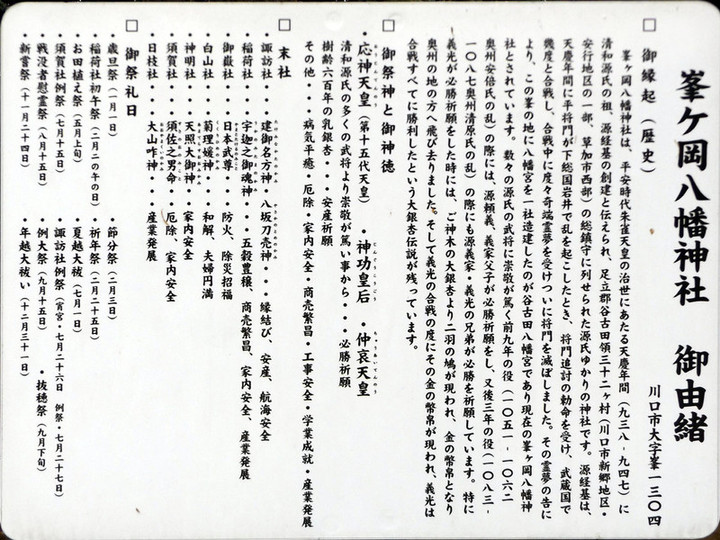 峯ケ岡八幡神社 御由緒
川口市大字峯一三〇四
□ 御縁起（歴史）
峯ヶ岡八幡神社は、平安時代朱雀天皇の治世にあたる天慶年間（九三八-九四七）に
清和源氏の祖、源経基の創建と伝えられ、足立郡谷古田領三十二ヶ村（川口市新郷地区・
安行地区の一部、草加市西部）の総鎮守に列せられた源氏ゆかりの神社です。源経基は、
天慶年間に平将門が下総国岩井で乱を起こしたとき、将門追討の勅命を受け、武蔵国で
幾度と合戦し、合戦中に度々奇端霊夢を受けついに将門を滅ぼしました。その霊夢の告に
より、この峯の地に八幡宮を一社造建したのが谷古田八幡宮であり現在の峯ヶ岡八幡神
社とされています。数々の源氏の武将に崇敬が篤く前九年の役（一〇五一-一〇六二
奥州安倍氏の乱）の際には、源頼義、義家父子が必勝祈願をし、又後三年の役（一〇八三-
一〇八七奥州清原氏の乱）の際にも源義家・義光の兄弟が必勝を祈願しています。特に
義光が必勝祈願をした時には、ご神木の大銀杏より二羽の鳩が現われ、金の幣帛となり
奥州の地の方へ飛び去りました。そして義光の合戦の度にその金の幣帛が現われ、義光は
合戦すべてに勝利したという大銀杏伝説が残っています。
□ 御祭神と御神徳
・応神天皇（第十五代天皇）・神功皇后・仲哀天皇
清和源氏の多くの武将より崇敬が篤い事から・・・必勝祈願
樹齢六百年の乳銀杏・・・安産祈願
その他・・・病気平癒・厄除・家内安全・商売繁昌・工事安全・学業成就・産業発展
□ 末社
・諏訪社・・・建御名方神・八坂刀売神・・・縁結び、安産、航海安全
・稲荷社・・・宇迦之御魂神・・・五穀豊穣、商売繁昌、家内安全、産業発展
・御嶽社・・・日本武尊・・・防火、除災招福
・白山社・・・菊理媛神・・・和解、夫婦円満
・神明社・・・天照大御神・・・家内安全
・須賀社・・・須佐之男命・・・厄除、家内安全
・日枝社・・・大山咋神・・・産業発展
□ 御祭礼日
・歳旦祭（一月一日） ・節分祭（二月三日）
・稲荷社初午祭（二月二の午の日） ・祈年祭（二月二十五日）
・お田植え祭（五月上旬） ・夏越大祓（七月一日）
・須賀社例祭（七月十五日） ・諏訪社例祭（宵宮・七月二十六日 例祭・七月二十七日）
・戦没者慰霊祭（八月十五日） ・例大祭（九月十五日） ・抜穂祭（九月下旬）
・新嘗祭（十一月二十四日） ・年越大祓い（十二月三十一日）